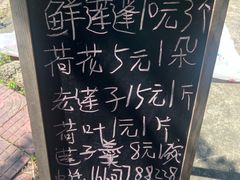 鲜莲蓬10元3个
荷花5元1朵
老莲子15元1斤
荷叶1元1片
莲子羹8元1碗